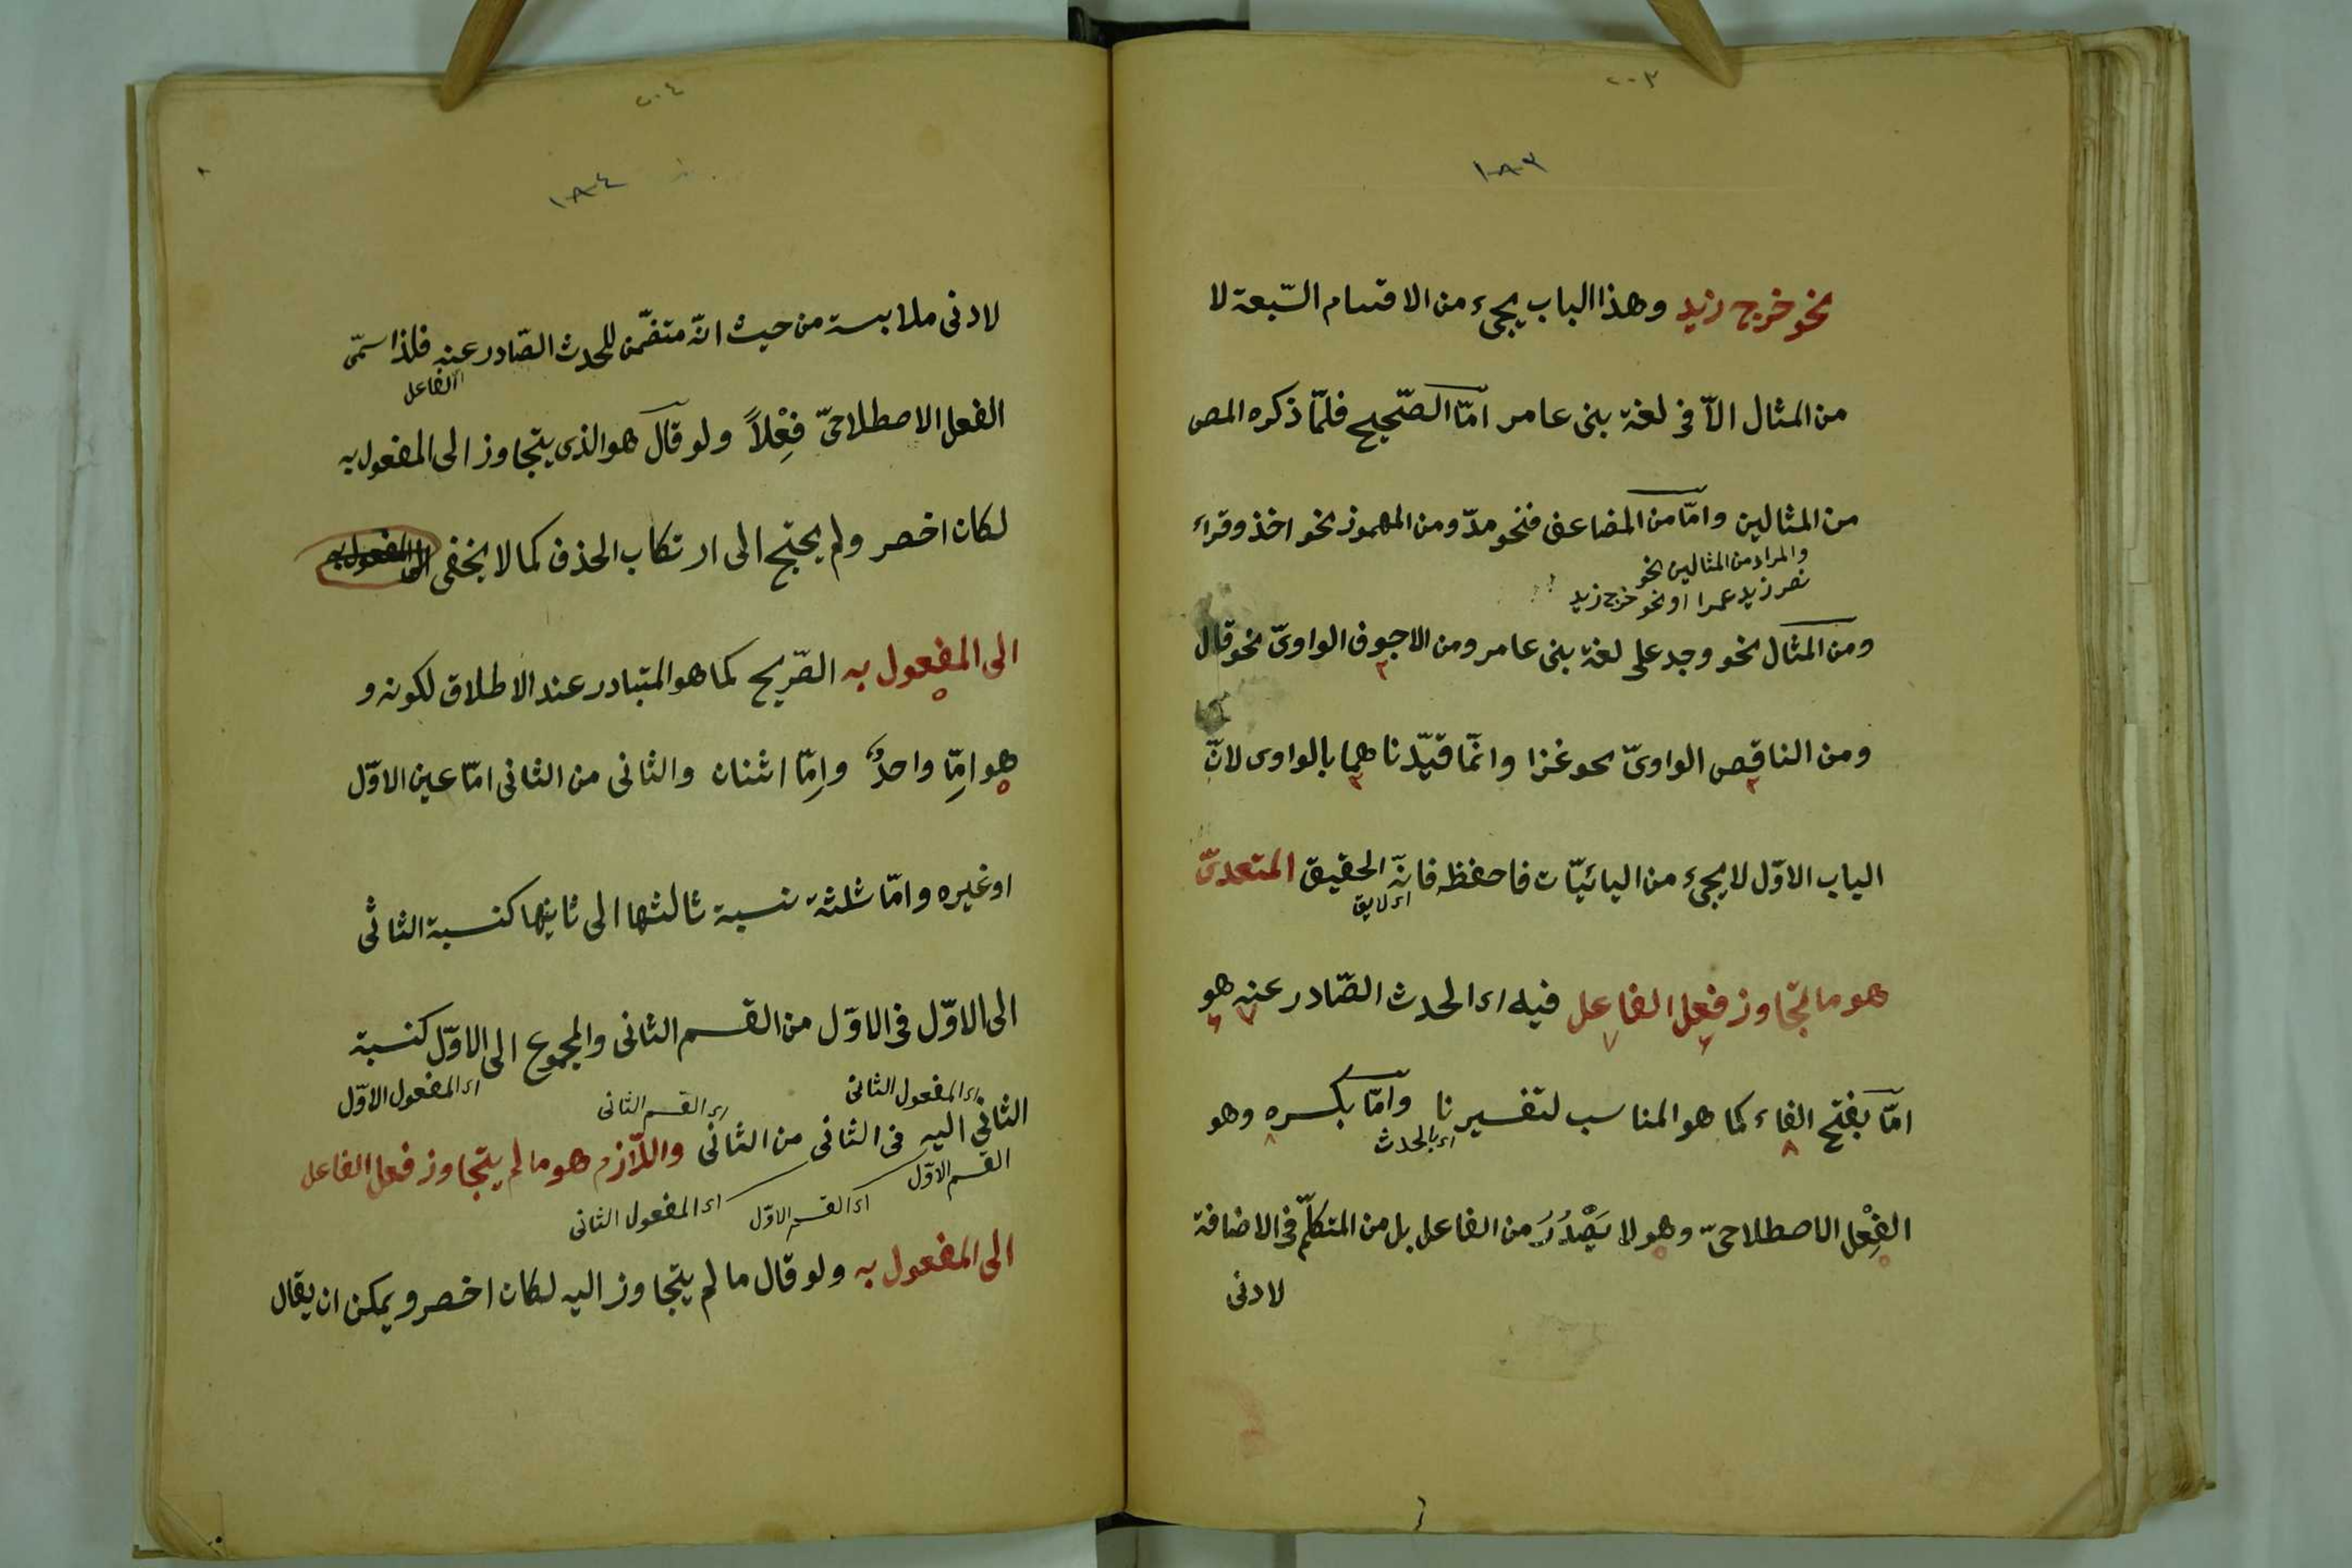 ٢٠٣
١٨٣
نحو خرج زيد وهذا الباب يجيء من الاقسام السّبعة لا
من المثال الّا فى لغة بنى عامر امّا الصّحيح فلمّا ذكره المص
من المثالين وامّا من المضاعف فنحو مدّ ومن المهموز نحو اخذ وقراء
والمراد من المثالين نحو
نصر زيد عمرا او نحو خرج زيد
ومن المثال نحو وجد على لغة بنى عامر ومن الاجوف الواوىّ نحو قال
ومن الناقص الواوىّ نحو غزا وانّما قيّدناهما بالواوى لانّ
الباب الاوّل لا يجيء من اليائيّات فاحفظه فانّه الحقيق المتعدىّ
اى لايق
هو ما تجاوز فعل الفاعل فيه اى الحدث الصّادر عنه هو
امّا بفتح الفاء كما هو المناسب لتفسيرنا وامّا بكسره وهو
اى بالحدث
الفِعْل الاصطلاحىّ وهو لا يَصْدُرُ من الفاعل بل من المتكلّم فى الاضافة
لادنى
٢٠٤
١٨٤
لادنى ملابسة من حيث انّه متضمّن للحدث الصّادر عنه فلذا سمّى
اى الفاعل
الفعل الاصطلاحىّ فِعْلاً ولو قال هو الذى يتجاوز الى المفعول به
لكان اخصر ولم يحتج الى ارتكاب الحذف كما لا يخفى الى المفعول به
الى المفعول به الصّريح كما هو المتبادر عند الاطلاق لكونه و
هو امِّا واحدٌ وامِّا اثنان والثانى من الثانى امّا عين الاوّل
او غيره وامّا ثلثة نسبة ثالثها الى ثانيها كنسبة الثانى
الى الاوّل فى الاوّل من القسم الثانى والمجموع الى الاوّل كنسبة
اى المفعول الثانى
اى القسم الثانى
اى المفعول الاوّل
الثانى اليه فى الثانى من الثانى واللّازم هو ما لم يتجاوز فعل الفاعل
القسم الاوّل
اى القسم الاوّل
اى المفعول الثانى
الى المفعول به ولو قال ما لم يتجاوز اليه لكان اخصر ويمكن ان يقال